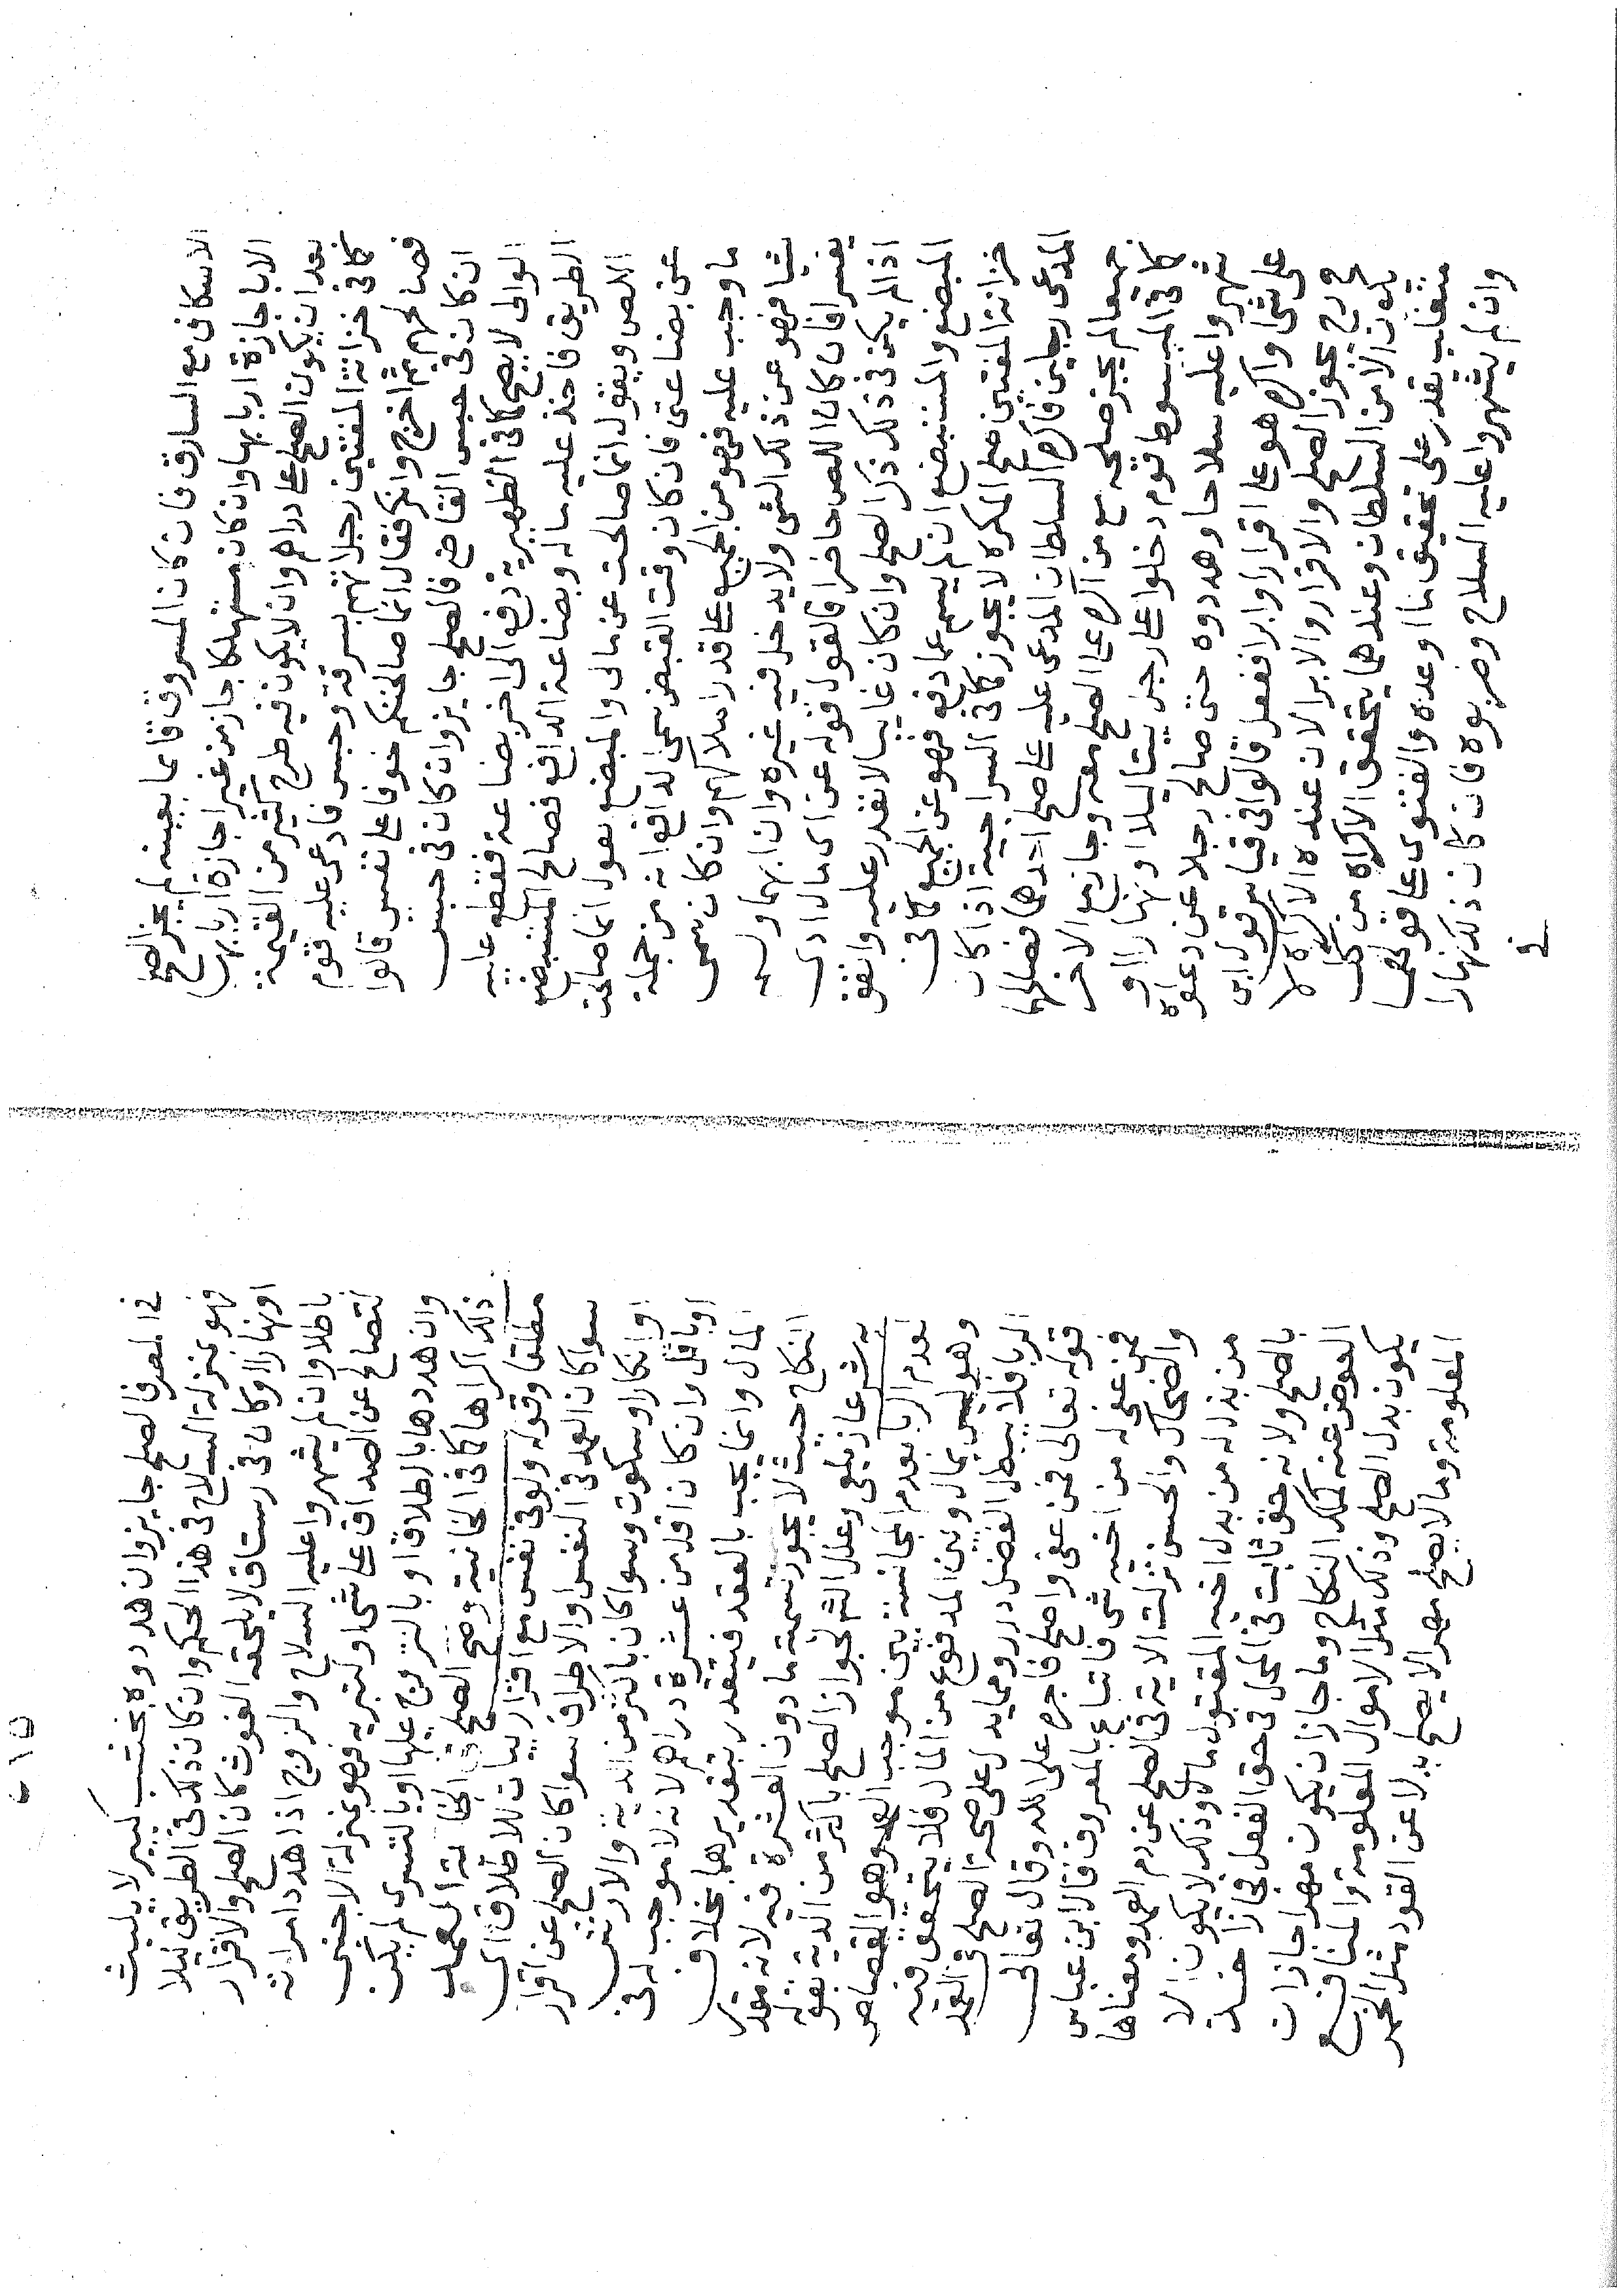 الاسكاف مع السارق فان كان المسروق قائما بعينه لم يجز الصلح
الا باجازة اربابها وان كان مستهلكا جاز من غير اجازة اربابها
بعد ان يكون الصلح على دراهم وان لا يكون فيه طرح كثير من القيمة
كما فى خزانة المفتين رجل اتهم بسرقة وحبس فادعى عليه قوم
فصالحهم ثم اخرج وانكر فقال انما صالحتكم خوفا على نفسى قالوا
ان كان فى حبس القاضى فالصلح جايز وان كان فى حبس
الوالى لا يصح كما فى الظهيرية دفع الى اخر بضاعة فقطع عليه
الطريق فاخذ عليه ماله وبضاعة الدافع فصالح المستبضع
اللص ويقول انما صالحت عن مالى والمبضع يقول انما صالحت
عن بضاعتى فان كان وقت القبض سمى الدافع انه من جملة
ما وجب عليه فهو من الجميع على قدر املاكهم وان كان سمى
شيا فهو عن ذلك الشى ولا يدخل فيه غيره وان ابهما ولم
يفسرا فان كان اللص حاضرا فالقول قوله عن اى مال ادى
اذا لم يكن فى ذلك ذكر الصلح وان كان غايبا لا نقدر عليه واتفق
المبضع والمستبضع ان لم يسم عما دفع فهو عن الجميع كما فى
خزانة المفتين صلح المكره لا يجوز كما فى السراجية اذا كان
المدعى رجلين فاكره السلطان المدعى عليه على صلح احدهما فصالحهما
جميعا لم يجز صلحه مع من اكره على الصلح معه وجاز مع الاخر
كما فى المبسوط قوم دخلوا على رجل بيتا ليلا او نهارا او
شهروا عليه سلاحا وهددوه حتى صالح رجلا عن دعواه
على شى او اكره هو على اقرار او ابرا ففعل قالوا فى قياس قول ابى
ح رح يجوز الصلح والاقرار والابرا لان عنده الاكراه لا
يكون الا من السلطان وعندهما يتحقق الاكراه من كل
متغلب يقدر على تحقيق ما اوعده والفتوى على قولهما
وان لم يشهروا عليه السلاح وضربوه فان كان ذلك نهارا
فى
فى المصر فالصلح جايز وان هددوه بخشب كبير لا يلبث
فهو بمنزلة السلاح فى هذا الحكم وان كان ذلك فى الطريق ليلا
او نهارا او كان فى رستاق لا يلحقه الغوث كان الصلح والاقرار
باطلا وان لم يشهروا عليه السلاح والزوج اذا هدد امراته
لتصالح عن الصداق على شى او لتبريه فهو بمنزلة الاجنبى
وان هددها بالطلاق او بالتزوج عليها او بالتسرى لم يكن
ذلك اكراها كما فى الخانية وصح الصلح فى الجناية العمد
مطلقا وقوله ولو فى نفس مع اقرار بيان للاطلاق اى
سوا كان العمد فى النفس والاطراف سوا كان الصلح عن اقرار
او انكار او سكوت وسوا كان باكثر من الدية والارش
او باقل وان كان اقل من عشرة دراهم لانه لا موجب له فى
المال وانما يجب بالعقد فيتقدر بتقديرهما بخلاف
النكاح حيث لا يجوز تسمية ما دون العشرة فيه لانه مقدر
به شرعا زيلعى وعلل الشم لجواز الصلح باكثر من الدية بقوله
لعدم الربا بعدم المجانسة بين موجب العمد وهو القصاص
وهو ليس بمال وبين المدفوع من المال فلا يتحقق فيه
الربا فلا يبطل الفضل درر ومما يدل على صحة الصلح فى العمد
قوله تعالى فمن عفى واصلح فاجره على الله وقال تعالى
فمن عفى له من اخيه شى فاتباع بالمعروف قال ابن عباس
والضحاك والحسن نزلت الاية فى الصلح عن دم العمد ومعناها
من بذل له من بدل اخيه المقتول مالا وذلك لا يكون الا
بالصلح ولانه حق ثابت فى المحل فى حق الفعل فجاز اخذ
العوض عنه كملك النكاح وما جاز ان يكون مهرا جاز ان
يكون بدل الصلح وذلك مثل الاموال المعلومة والمنافع
المعلومة وما لا يصلح مهرا لا يصلح بدلا عن القود مثل الخمر